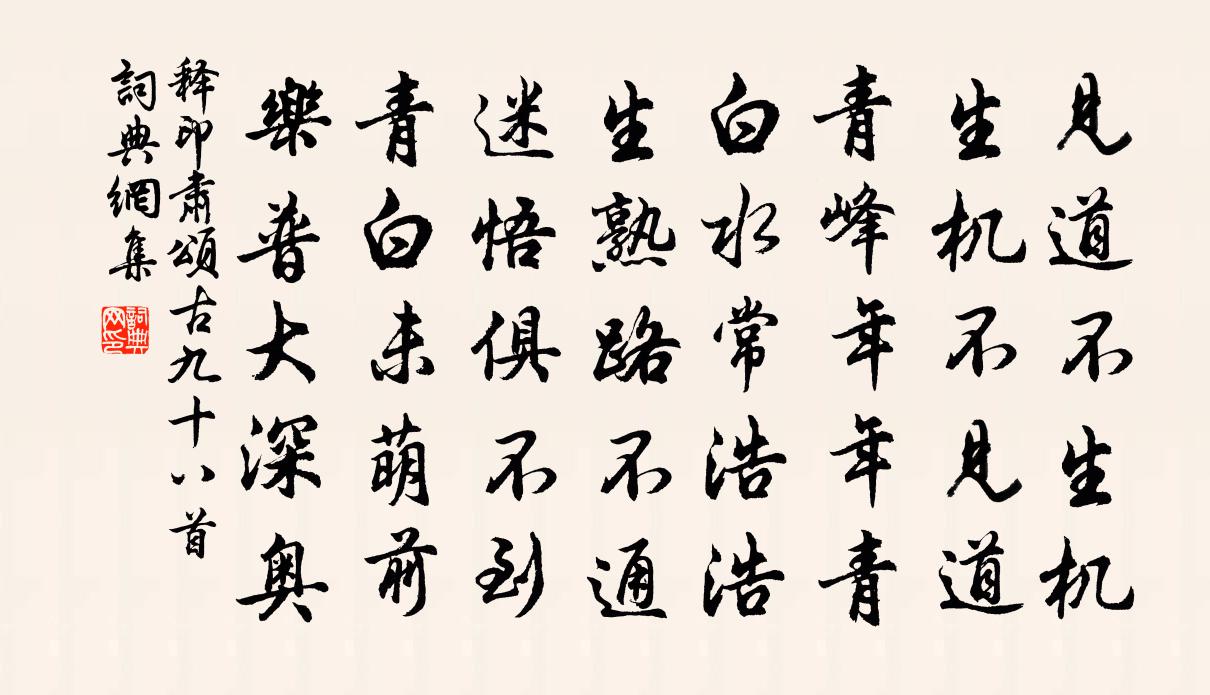 見道不生机
生机不見道
青峰年年青
白水常浩浩
生熟路不通
迷悟俱不到
青白未萌前
樂普大深奥
释印肃頌古九十八首
詞典網集
詞典
网印